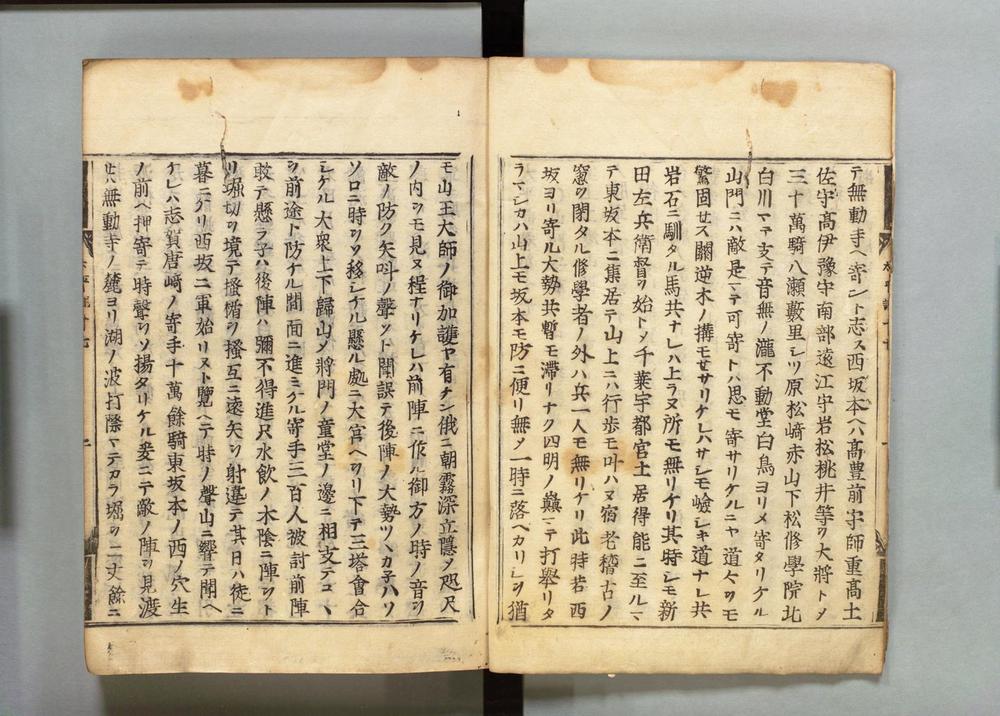 テ無動寺ヘ寄ント志ス西坂本ヘハ高豊前守師重高土
佐守高伊豫守南部遠江守岩松桃井等ヲ大將トメ
三十萬騎八瀬薮里シツ原松﨑赤山下松修學院北
白川マテ支テ音無ノ瀧不動堂白鳥ヨリメ寄タリケル
山門ニハ敵是マテ可寄トハ思モ寄サリケルニヤ道々ヲモ
警固せス關逆木ノ搆モせサリケレハサシモ嶮シキ道ナレ共
岩石ニ馴タル馬共ナレハ上ラヌ所モ無リケリ其時シモ新
田左兵衛督ヲ始トメ千葉宇都宮土居得能ニ至ルマ
テ東坂本ニ集居テ山上ニハ行歩モ叶ハヌ宿老稽古ノ
窻ヲ閉タル修學者ノ外ハ兵一人モ無リケリ此時若西
坂ヨリ寄ル大勢共暫モ滯リナク四明ノ巓マテ打擧リタ
ラマシカハ山上モ坂本モ防ニ便リ無メ一時ニ落ヘカリシヲ猶
モ山王大師ノ御加護ヤ有ケン俄ニ朝霧深立隱メ咫尺
ノ内ヲモ見ヌ程ナリケレハ前陣ニ作ル御方ノ時ノ音ヲ
敵ノ防ク矢呌ノ聲ソト聞誤テ後陣ノ大勢ツヽカ子ハソ
ソロニ時ヲソ移シケル懸ル處ニ大宮ヘヲリ下テ三塔會合
シケル大衆上下歸山メ將門ノ童堂ノ邊ニ相支テコヽ
ヲ前途ト防ケル間面ニ進ミケル寄手三百人被討前陣
敢テ懸ラ子ハ後陣ハ彌不得進只水飲ノ木陰ニ陣ヲト
リ堀切ヲ境テ掻楯ヲ掻互ニ遠矢ヲ射違テ其日ハ徒ニ
暮ニケリ西坂ニ軍始リヌト覽ヘテ時ノ聲山ニ響テ聞ヘ
ケレハ志賀唐﨑ノ寄手十萬餘騎東坂本ノ西ノ穴生
ノ前ヘ押寄テ時聲ヲソ揚タリケル爰ニテ敵ノ陣ヲ見渡
セハ無動寺ノ麓ヨリ湖ノ波打際マテカラ堀ヲ二丈餘ニ